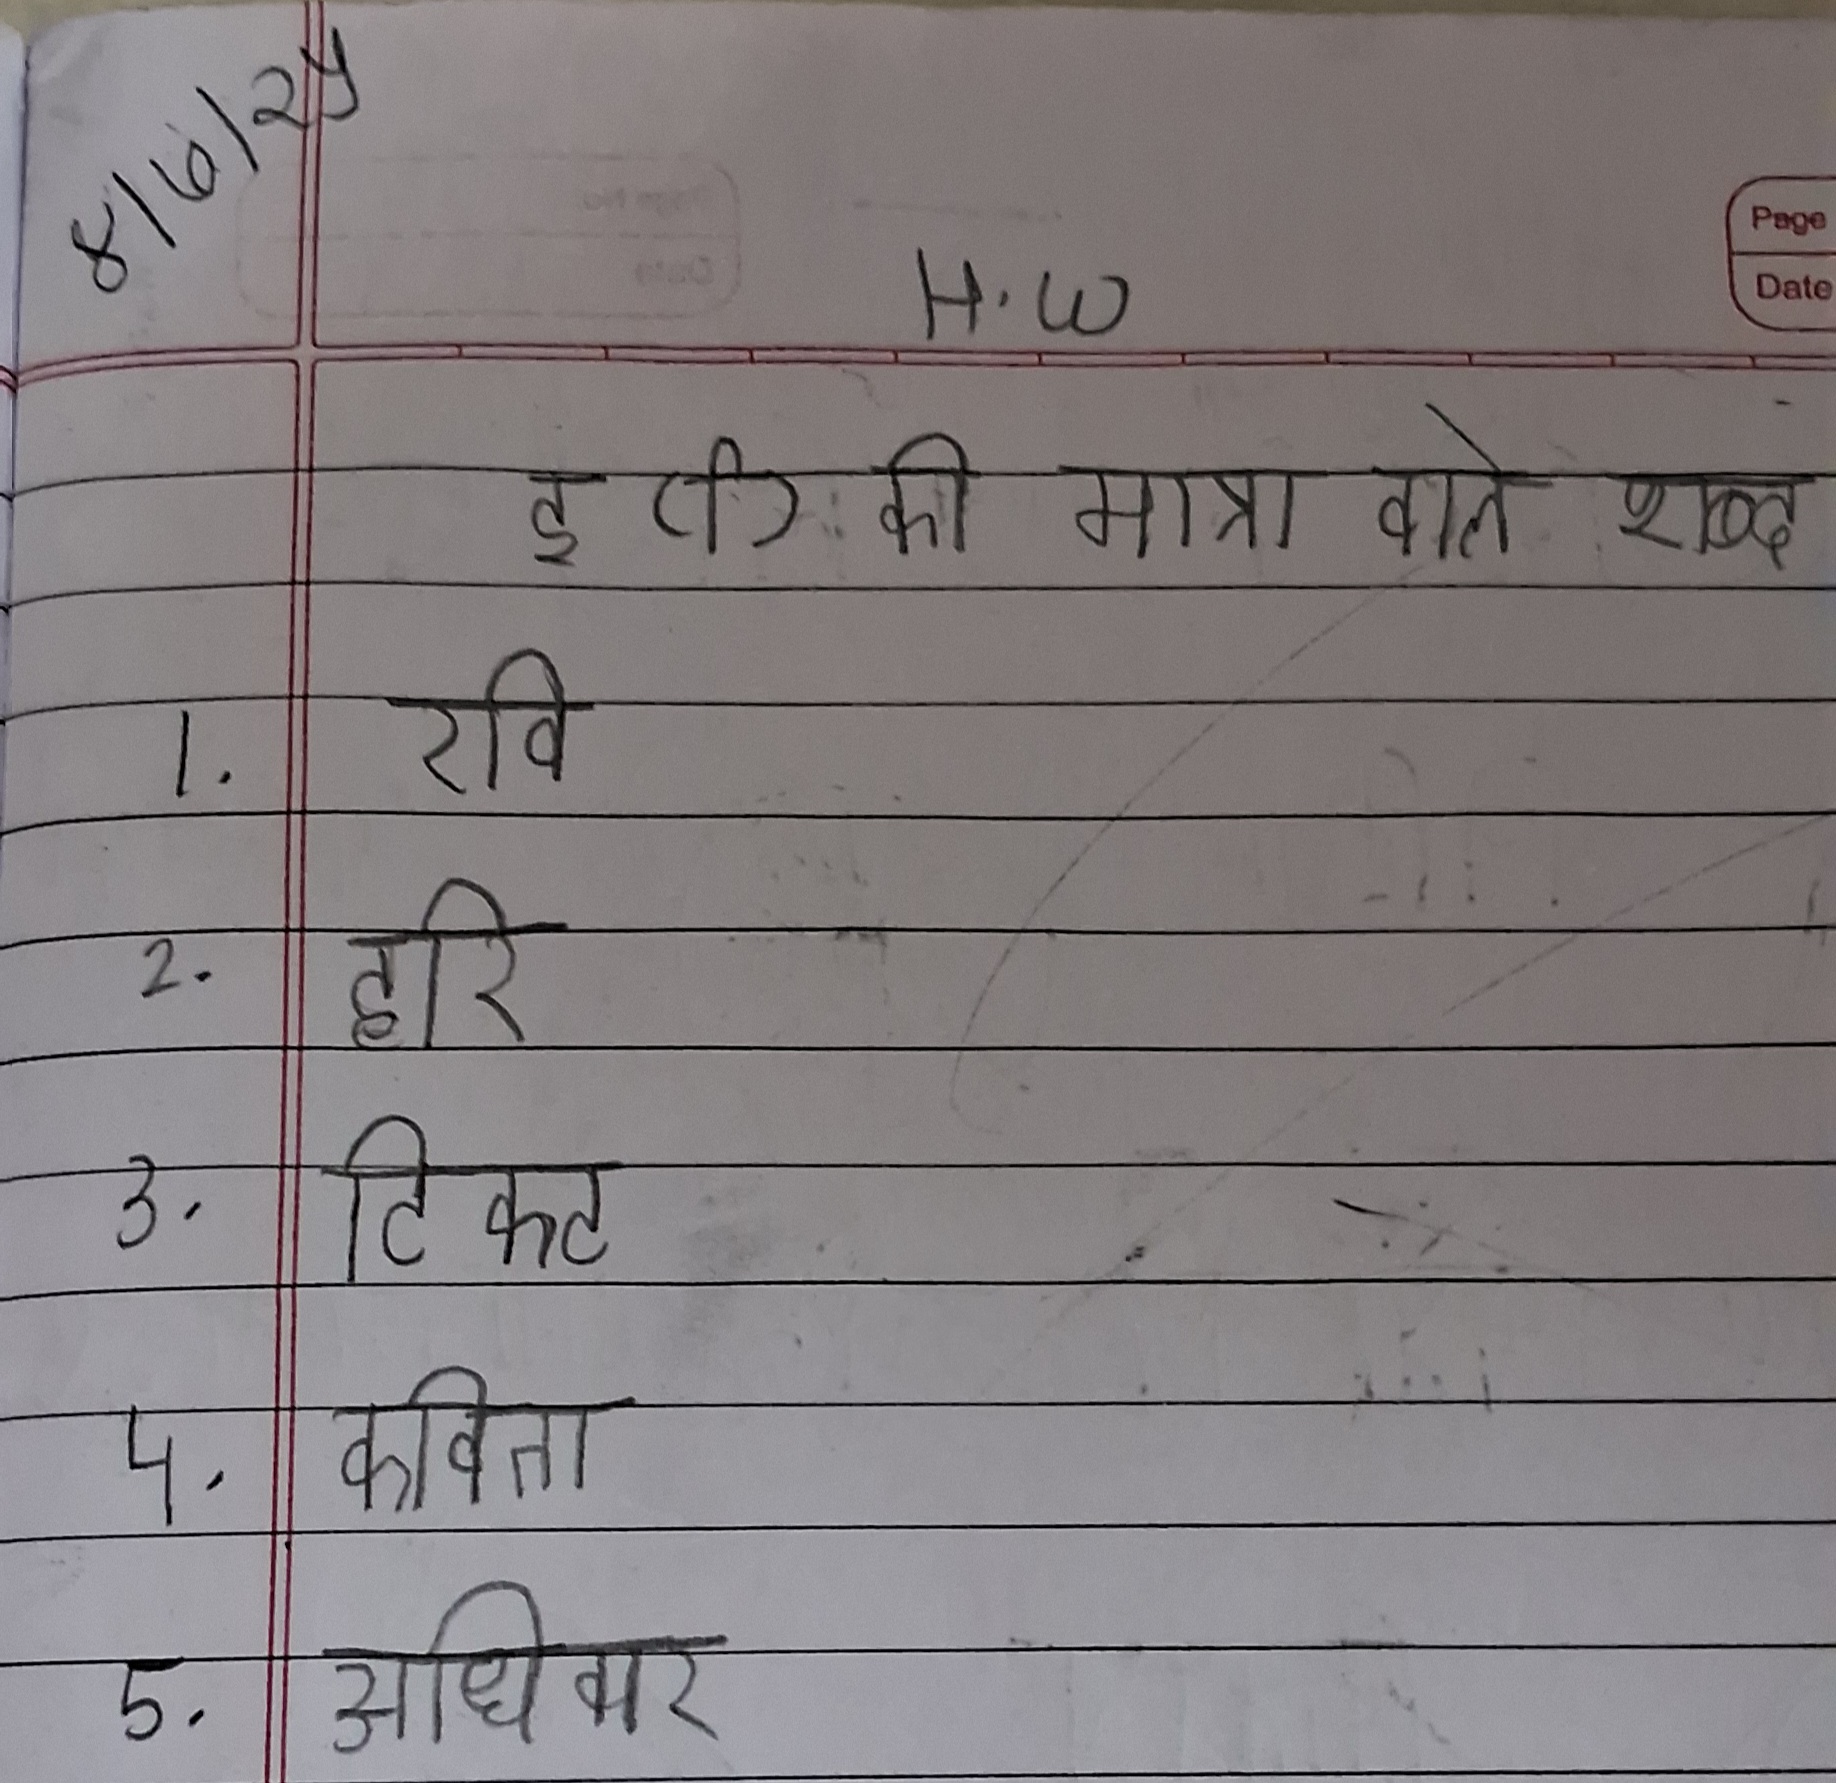 8/6/24
Page
Date
H.W
इ (ि) की मात्रा वाले शब्द
1. रवि
2. हरि
3. टिकट
4. कविता
5. अधिकार